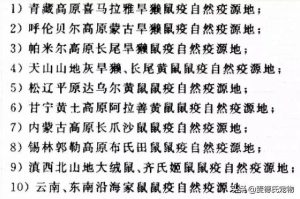 1）青藏高原喜马拉雅旱獭鼠疫自然疫源地；
2）呼伦贝尔高原蒙古旱獭鼠疫自然疫源地；
3）帕米尔高原长尾旱獭鼠疫自然疫源地；
4）天山山地灰旱獭、长尾黄鼠鼠疫自然疫源地；
5）松辽平原达乌尔黄鼠鼠疫自然疫源地；
6）甘宁黄土高原阿拉善黄鼠鼠疫自然疫源地；
7）内蒙古高原长爪沙鼠鼠疫自然疫源地；
8）锡林郭勒高原布氏田鼠鼠疫自然疫源地；
9）滇西北山地大绒鼠、齐氏姬鼠鼠疫自然疫源地；
10）云南、东南沿海家鼠鼠疫自然疫源地